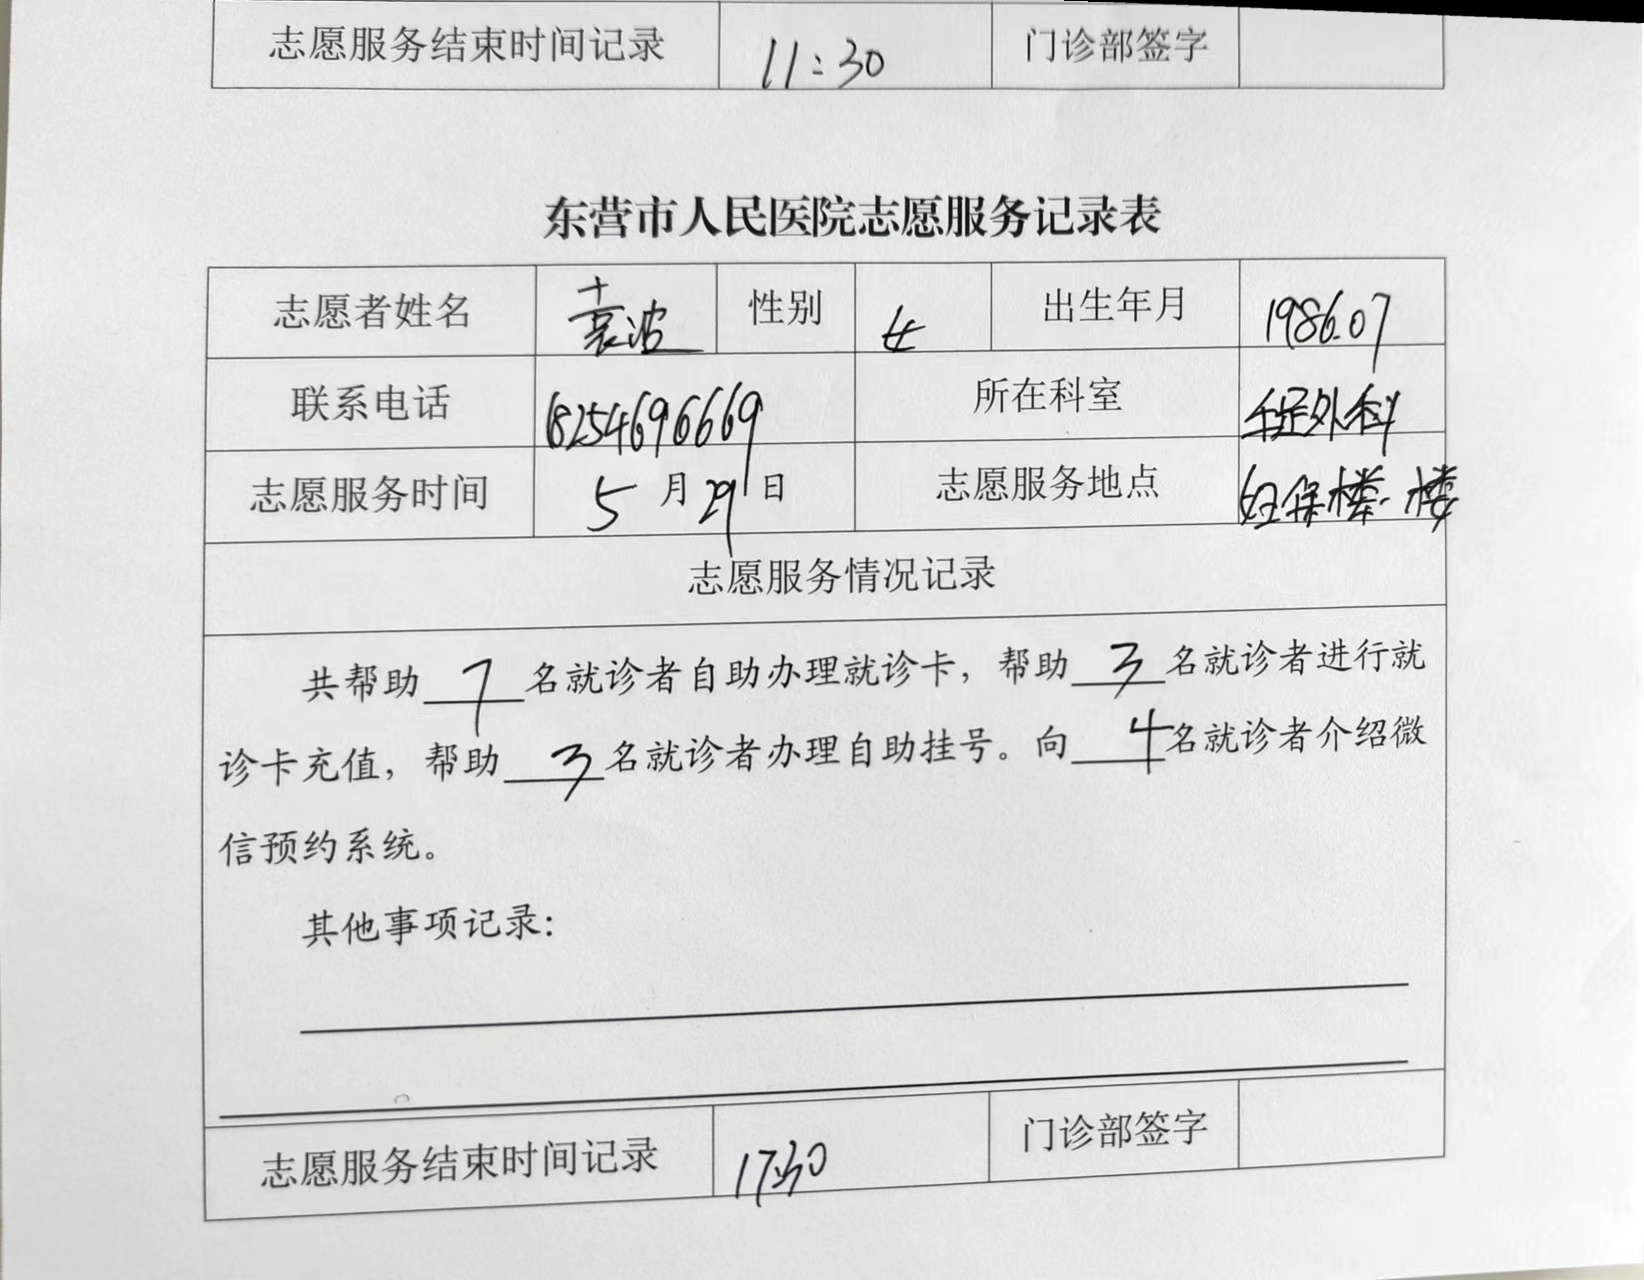 志愿服务结束时间记录 11:30 门诊部签字
东营市人民医院志愿服务记录表
志愿者姓名 袁波 性别 女 出生年月 1986.07
联系电话 18254696669 所在科室 外科
志愿服务时间 5月29日 志愿服务地点 妇保楼一楼
志愿服务情况记录
共帮助7名就诊者自助办理就诊卡，帮助3名就诊者进行就
诊卡充值，帮助3名就诊者办理自助挂号。向4名就诊者介绍微
信预约系统。
其他事项记录：
志愿服务结束时间记录 17:30 门诊部签字